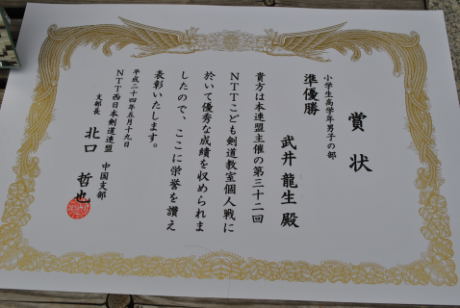 賞状
小学生高学年男子の部
準優勝
武井 龍生 殿
貴方は本連盟主催の第三十二回
NTTこども剣道教室個人戦に
於いて優秀な成績を収められま
したので、ここに栄誉を讃え
表彰いたします。
平成二十四年五月十九日
NTT西日本剣道連盟 中国支部
支部長 北口 哲也